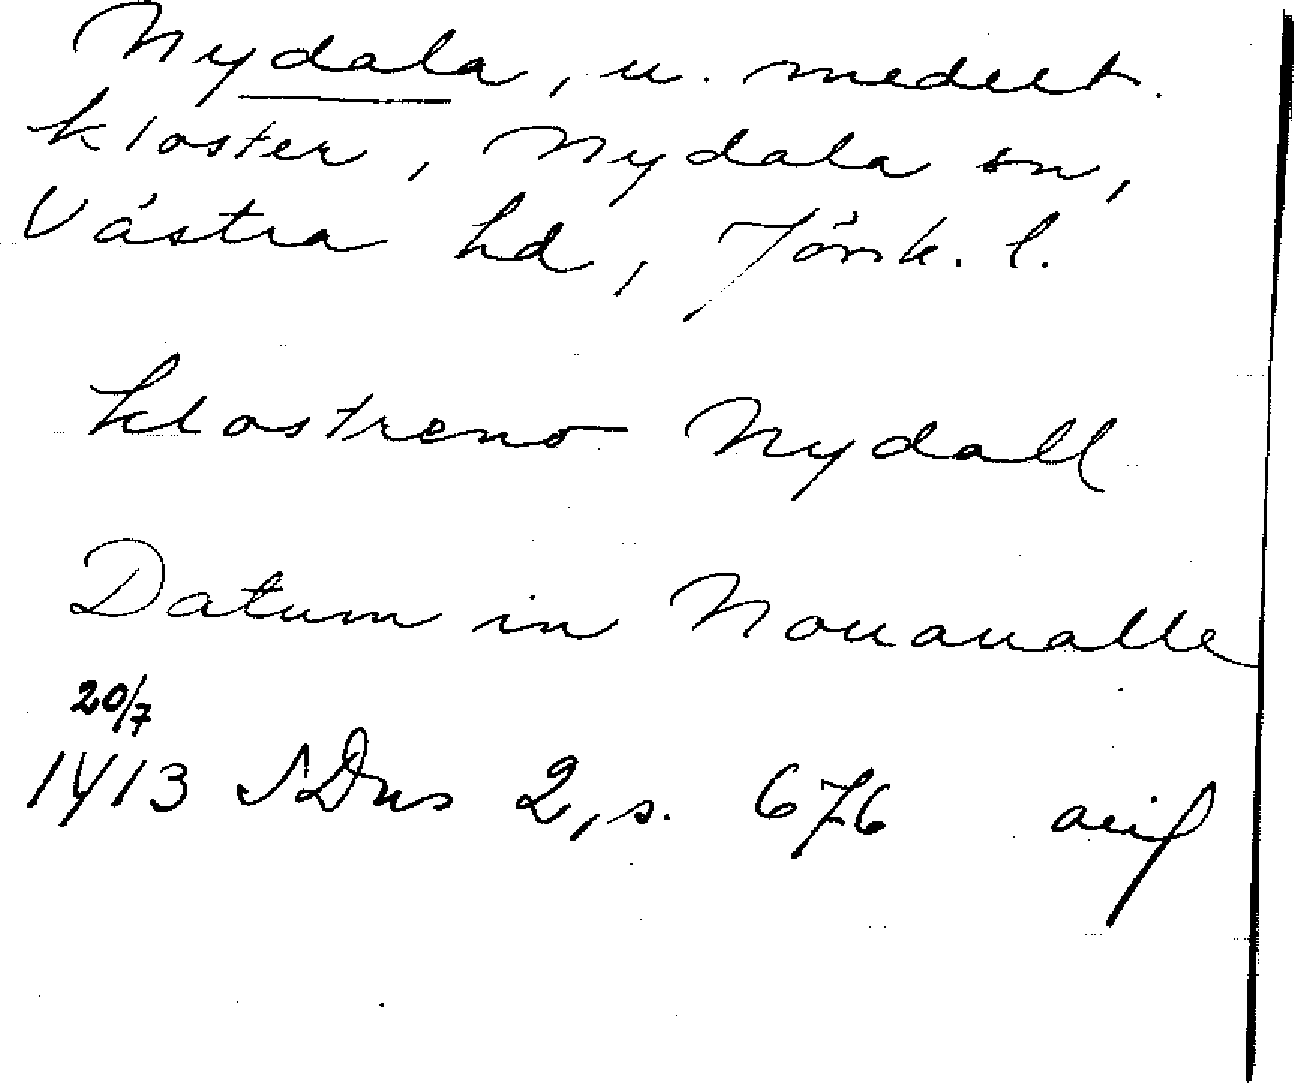 Nydala, u. medelt.
kloster, Nydala sn,
Västra hd, Jönk. l.
klostreno Nydall
Datum in Nouaualle
20/7
1413 SDns 2, s. 676